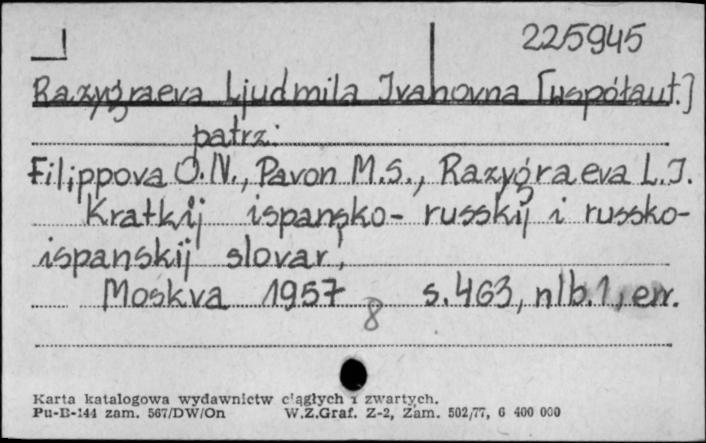 225945
Razygraeva Ljudmila Ivanovna [współaut.]
patrz:
Filippova O.N., Pavon M.S., Razygraeva L.I.
Kratkij ispansko- russkij i russko-
ispanskij slovar'.
Moskva 1957 s. 463, nlb. 1, err.
8
Karta katalogowa wydawnictw ciągłych i zwartych.
Pu-B-144 zam. 567/DW/On W.Z.Graf. Z-2, Zam. 502/77, 6 400 000